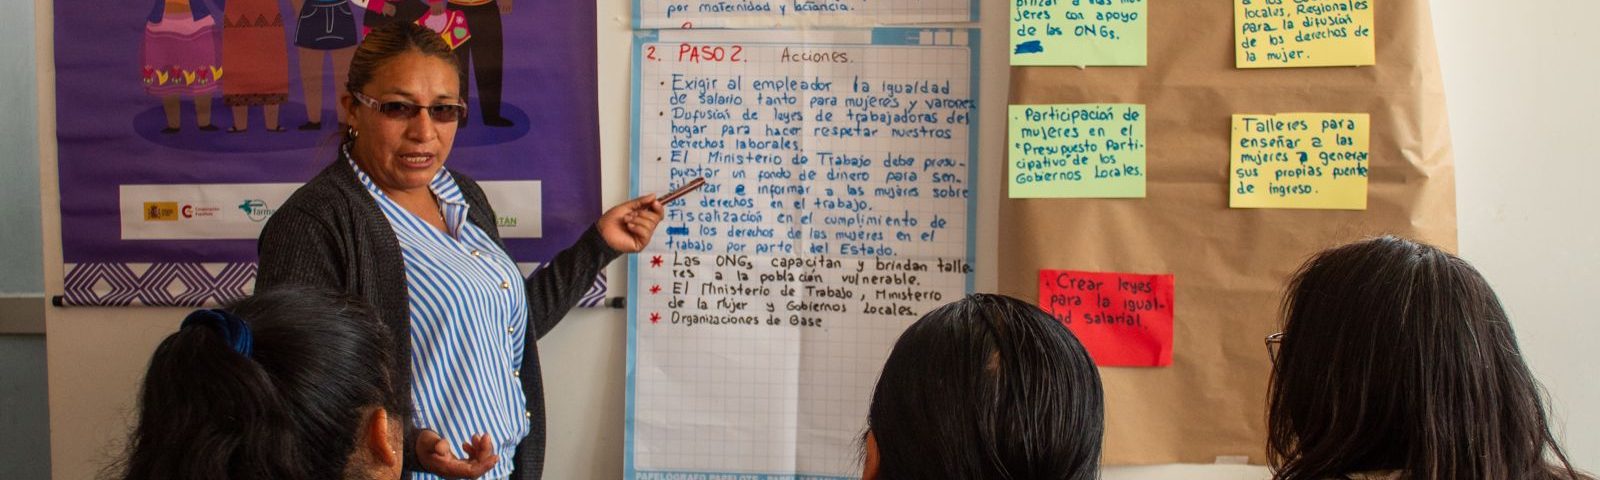 por maternidad y lactancia.
2. PASO 2. Acciones.
· Exigir al empleador la igualdad
de salario tanto para mujeres y varones
· Dufusión de leyes de trabajadoras del
hogar para hacer respetar nuestros
derechos laborales.
· El Ministerio de Trabajo debe presu-
puestar un fondo de dinero para sen-
sibilizar e informar a las mujeres sobre
sus derechos en el trabajo.
· Fiscalización en el cumplimiento de
los derechos de las mujeres en el
trabajo por parte del Estado.
* Las ONGs capacitan y brindan talle-
res a la población vulnerable.
* El Ministerio de Trabajo, Ministerio
de la Mujer y Gobiernos Locales.
* Organizaciones de Base
PAPELÓGRAFO PAPELOTE
jeres con apoyo
de las ONGs.
locales, Regionales
para la difusión
de los derechos de
la mujer.
· Participación de
mujeres en el
"Presupuesto Parti-
cipativo de los
Gobiernos Locales.
· Talleres para
enseñar a las
mujeres a generar
sus propias fuente
de ingreso.
· Crear leyes
para la igual-
dad salarial.
Cooperación
Española
farma